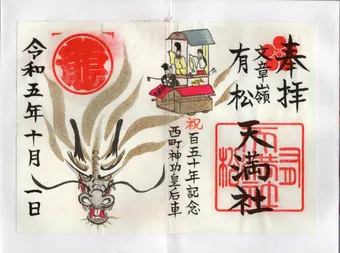 奉拝
文章嶺
有松
天満社
祝百五十年記念
西町神功皇后車
龍
令和五年十月一日